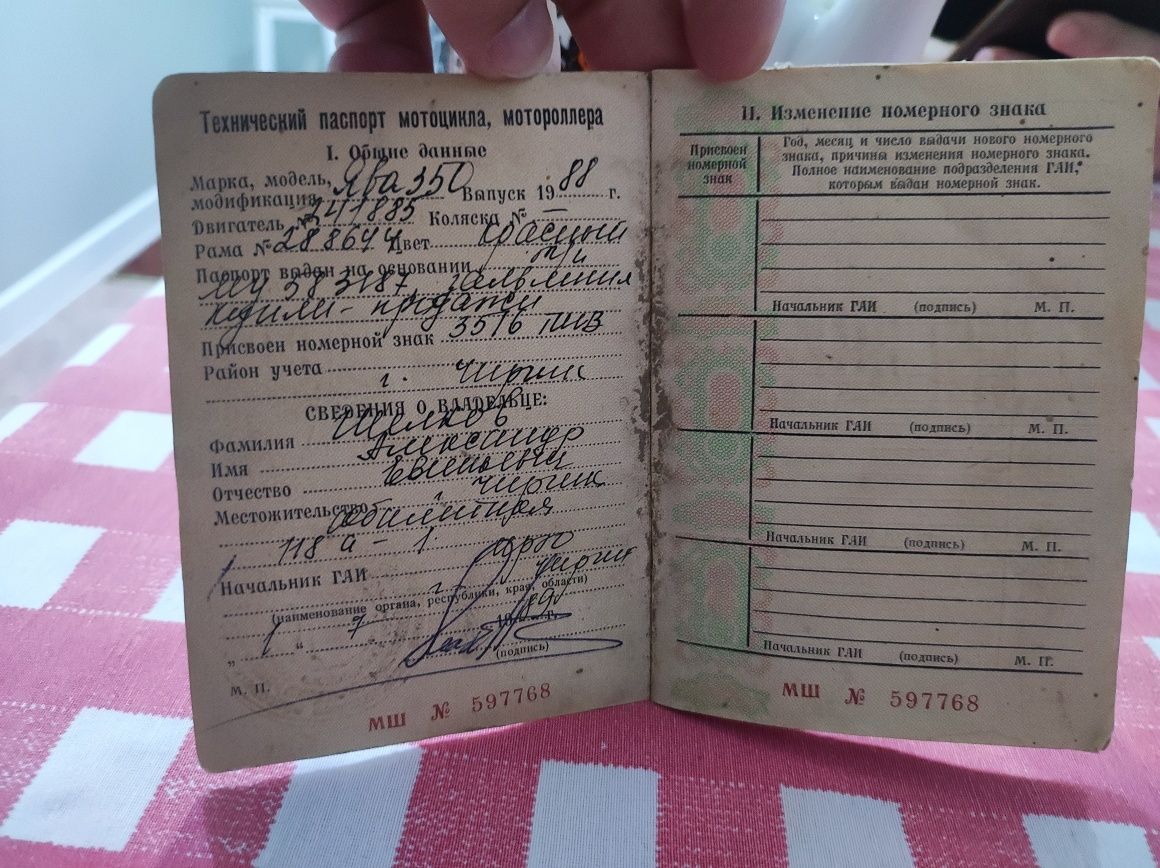 Технический паспорт мотоцикла, мотороллера
I. Общие данные
Марка, модель, модификация Ява 350 Выпуск 1988 г.
Двигатель № 241885 Коляска № —
Рама № 288644 Цвет красный
Паспорт выдан на основании т/п
МЧ 583487, заявления
купли-продажи
Присвоен номерной знак 3516
Район учета
г. Чирчик
СВЕДЕНИЯ О ВЛАДЕЛЬЦЕ:
Фамилия Щелков
Имя Александр
Отчество Евгеньевич
Местожительство г. Чирчик
Юбилейная
118 а - 1.
Начальник ГАИ
г. Чирчик
(наименование органа, республики, края, области)
„ “ 7 1989 г.
(подпись)
М. П.
МШ № 597768
II. Изменение номерного знака
Присвоен номерной знак
Год, месяц и число выдачи нового номерного знака, причины изменения номерного знака. Полное наименование подразделения ГАИ, которым выдан номерной знак.
Начальник ГАИ (подпись) М. П.
Начальник ГАИ (подпись) М. П.
Начальник ГАИ (подпись) М. П.
Начальник ГАИ (подпись) М. П.
МШ № 597768